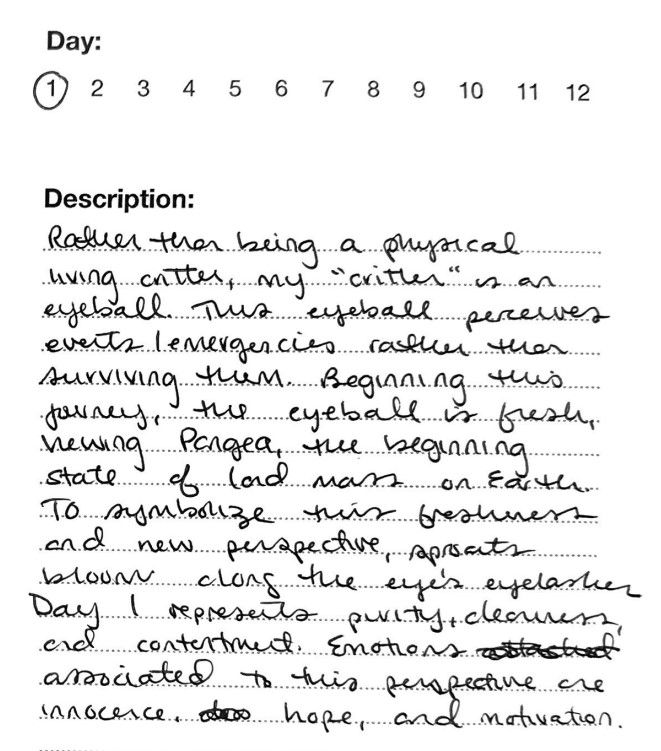 Day:
1 2 3 4 5 6 7 8 9 10 11 12
Description:
Rather than being a physical
living critter, my "critter" is an
eyeball. This eyeball perceives
events / emergencies rather than
surviving them. Beginning this
journey, the eyeball is fresh,
viewing Pangea, the beginning
state of land mass on Earth.
To symbolize this freshness
and new perspective, sprouts
bloom along the eye's eyelashes
Day 1 represents purity, clearness,
and contentment. Emotions attached
associated to this perspective are
innocence, hope, and motivation.